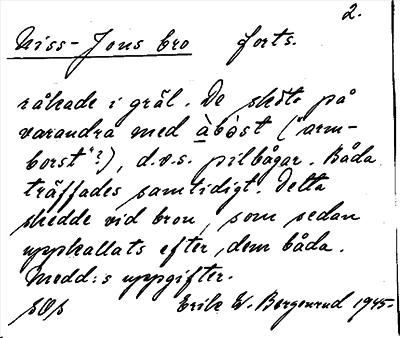 2.
Niss-Jons bro forts.
råkade i gräl. De sköto på
varandra med àbòst ("arm-
borst"?), d.v.s. pilbågar. Båda
träffades samtidigt. Detta
skedde vid bron, som sedan
uppkallats efter dem båda.
Medd:s uppgifter.
Erik W. Bergenrud 1945.